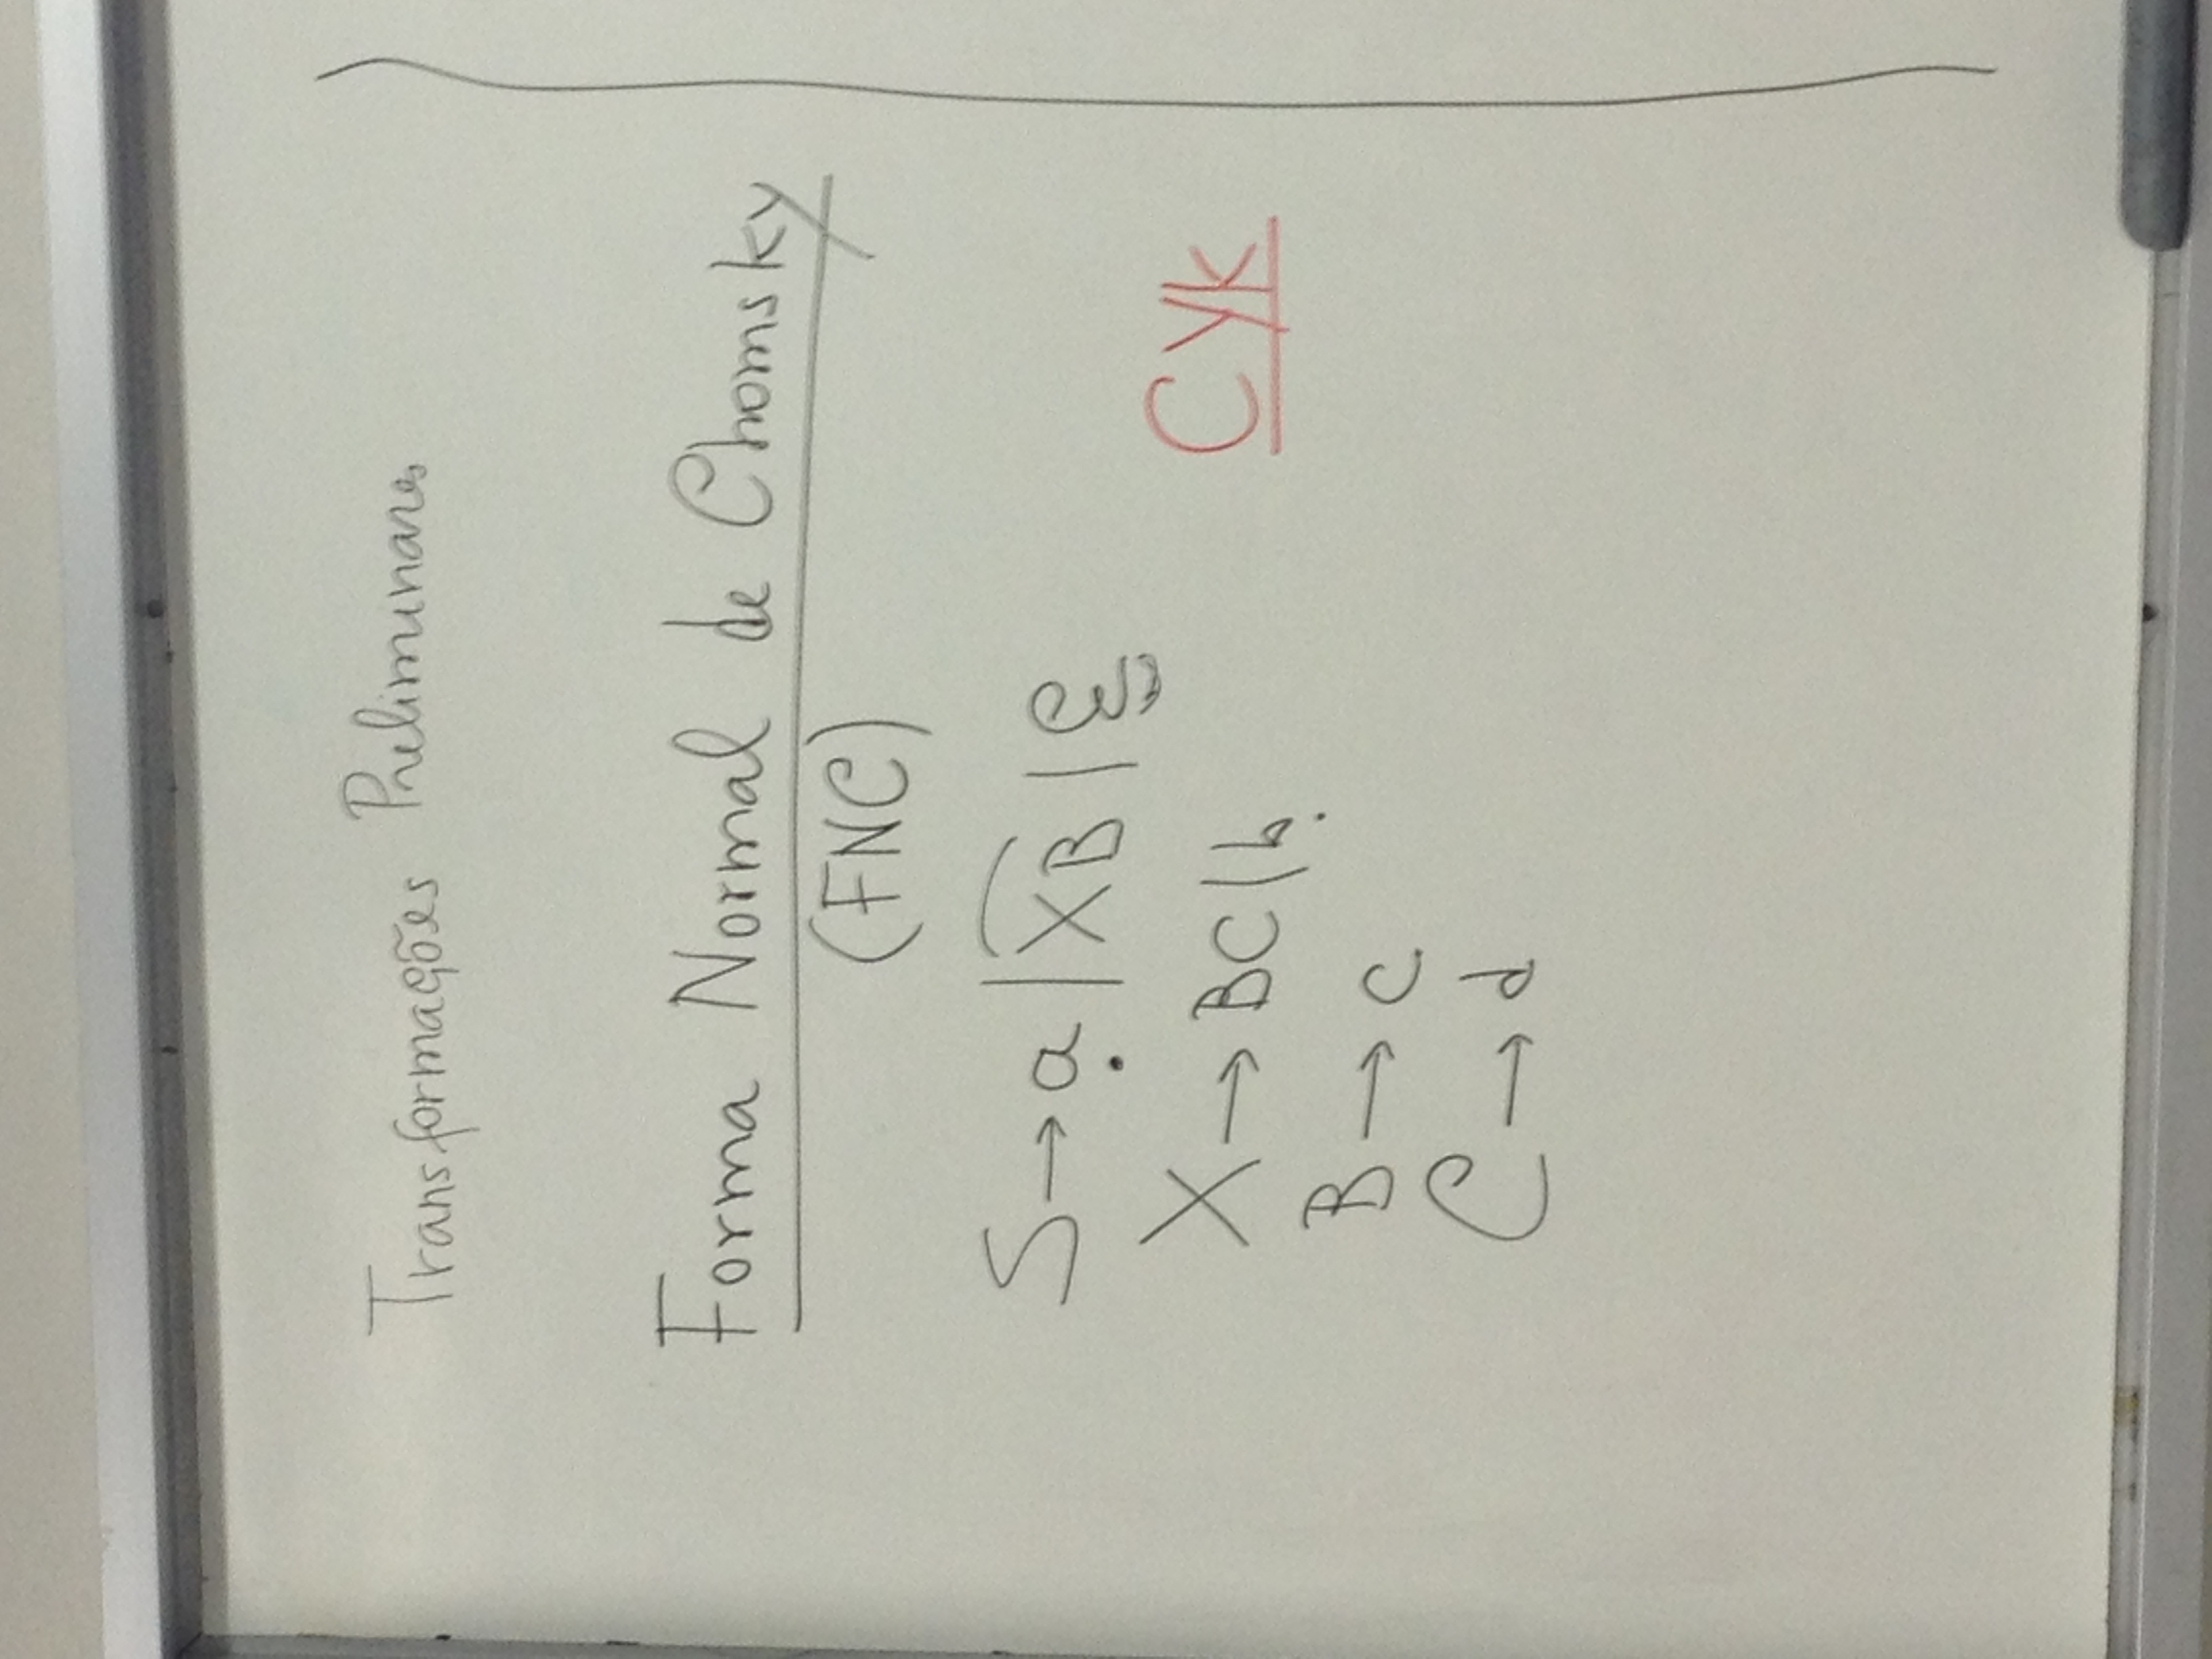 Transformações Preliminares
Forma Normal de Chomsky
(FNC)
S → a | XB | ε
X → BC | b
CYK
B → c
C → d